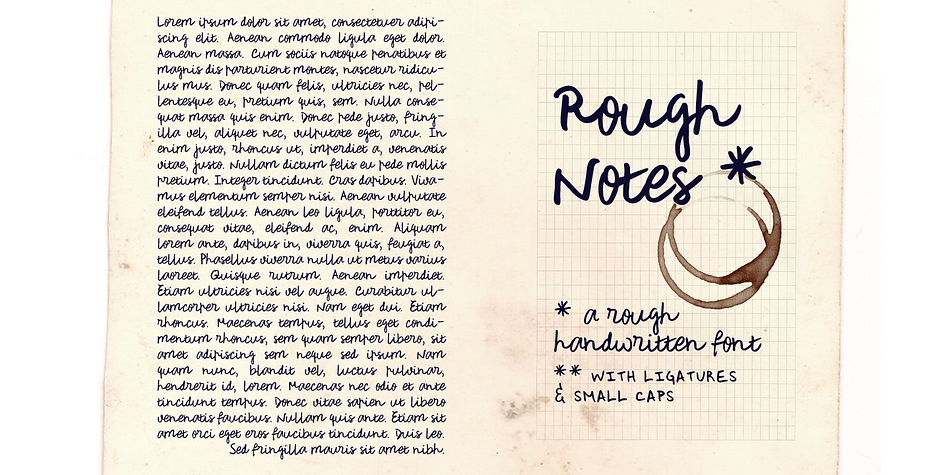 Lorem ipsum dolor sit amet, consectetuer adipi-
scing elit. Aenean commodo ligula eget dolor.
Aenean massa. Cum sociis natoque penatibus et
magnis dis parturient montes, nascetur ridicu-
lus mus. Donec quam felis, ultricies nec, pel-
lentesque eu, pretium quis, sem. Nulla conse-
quat massa quis enim. Donec pede justo, fring-
illa vel, aliquet nec, vulputate eget, arcu. In
enim justo, rhoncus ut, imperdiet a, venenatis
vitae, justo. Nullam dictum felis eu pede mollis
pretium. Integer tincidunt. Cras dapibus. Viva-
mus elementum semper nisi. Aenean vulputate
eleifend tellus. Aenean leo ligula, porttitor eu,
consequat vitae, eleifend ac, enim. Aliquam
lorem ante, dapibus in, viverra quis, feugiat a,
tellus. Phasellus viverra nulla ut metus varius
laoreet. Quisque rutrum. Aenean imperdiet.
Etiam ultricies nisi vel augue. Curabitur ul-
lamcorper ultricies nisi. Nam eget dui. Etiam
rhoncus. Maecenas tempus, tellus eget condi-
mentum rhoncus, sem quam semper libero, sit
amet adipiscing sem neque sed ipsum. Nam
quam nunc, blandit vel, luctus pulvinar,
hendrerit id, lorem. Maecenas nec odio et ante
tincidunt tempus. Donec vitae sapien ut libero
venenatis faucibus. Nullam quis ante. Etiam sit
amet orci eget eros faucibus tincidunt. Duis leo.
Sed fringilla mauris sit amet nibh.
Rough
Notes *
* a rough
handwritten font
** WITH LIGATURES
& SMALL CAPS